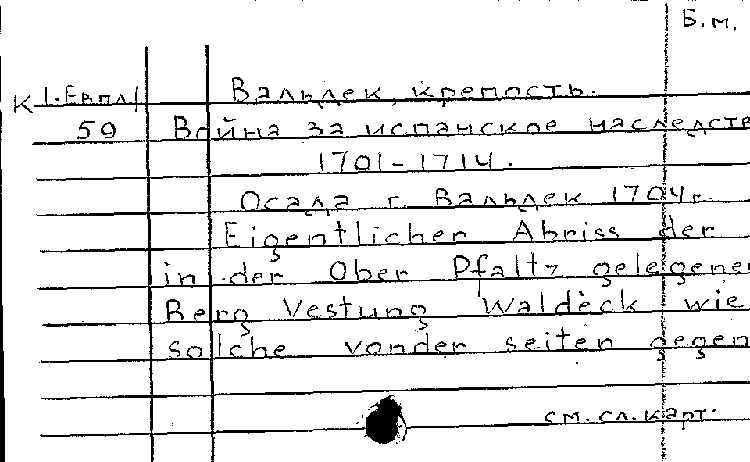 Б.м.
К 1.Евпл/ Вальдек, крепость.
59 Война за испанское наследств
1701-1714.
Осада г. Вальдек 1704г.
Eigentlicher Abriss der
in der Ober Pfaltz gelegenen
Berg Vestung Waldeck wie
solche vonder seiten gegen
см. сл. карт.